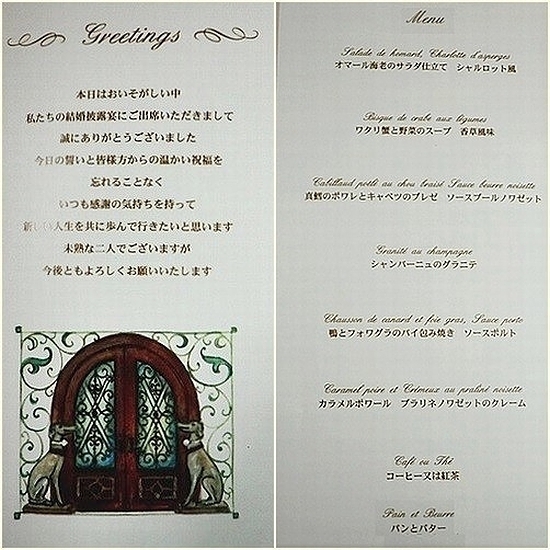 Greetings
本日はおいそがしい中
私たちの結婚披露宴にご出席いただきまして
誠にありがとうございました
今日の誓いと皆様方からの温かい祝福を
忘れることなく
いつも感謝の気持ちを持って
新しい人生を共に歩んで行きたいと思います
未熟な二人でございますが
今後ともよろしくお願いいたします
Menu
Salade de homard, Charlotte d'asperges
オマール海老のサラダ仕立て シャルロット風
Bisque de crabe aux légumes
ワタリ蟹と野菜のスープ 香草風味
Cabillaud poêlé au chou braisé Sauce beurre noisette
真鱈のポワレとキャベツのブレゼ ソースブールノワゼット
Granité au champagne
シャンパーニュのグラニテ
Chausson de canard et foie gras, Sauce porto
鴨とフォワグラのパイ包み焼き ソースポルト
Caramel poire et Crémeux au praliné noisette
カラメルポワール プラリネノワゼットのクレーム
Café ou Thé
コーヒー又は紅茶
Pain et Beurre
パンとバター